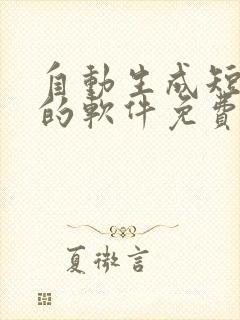 自動生成短
的軟件免費
夏微言